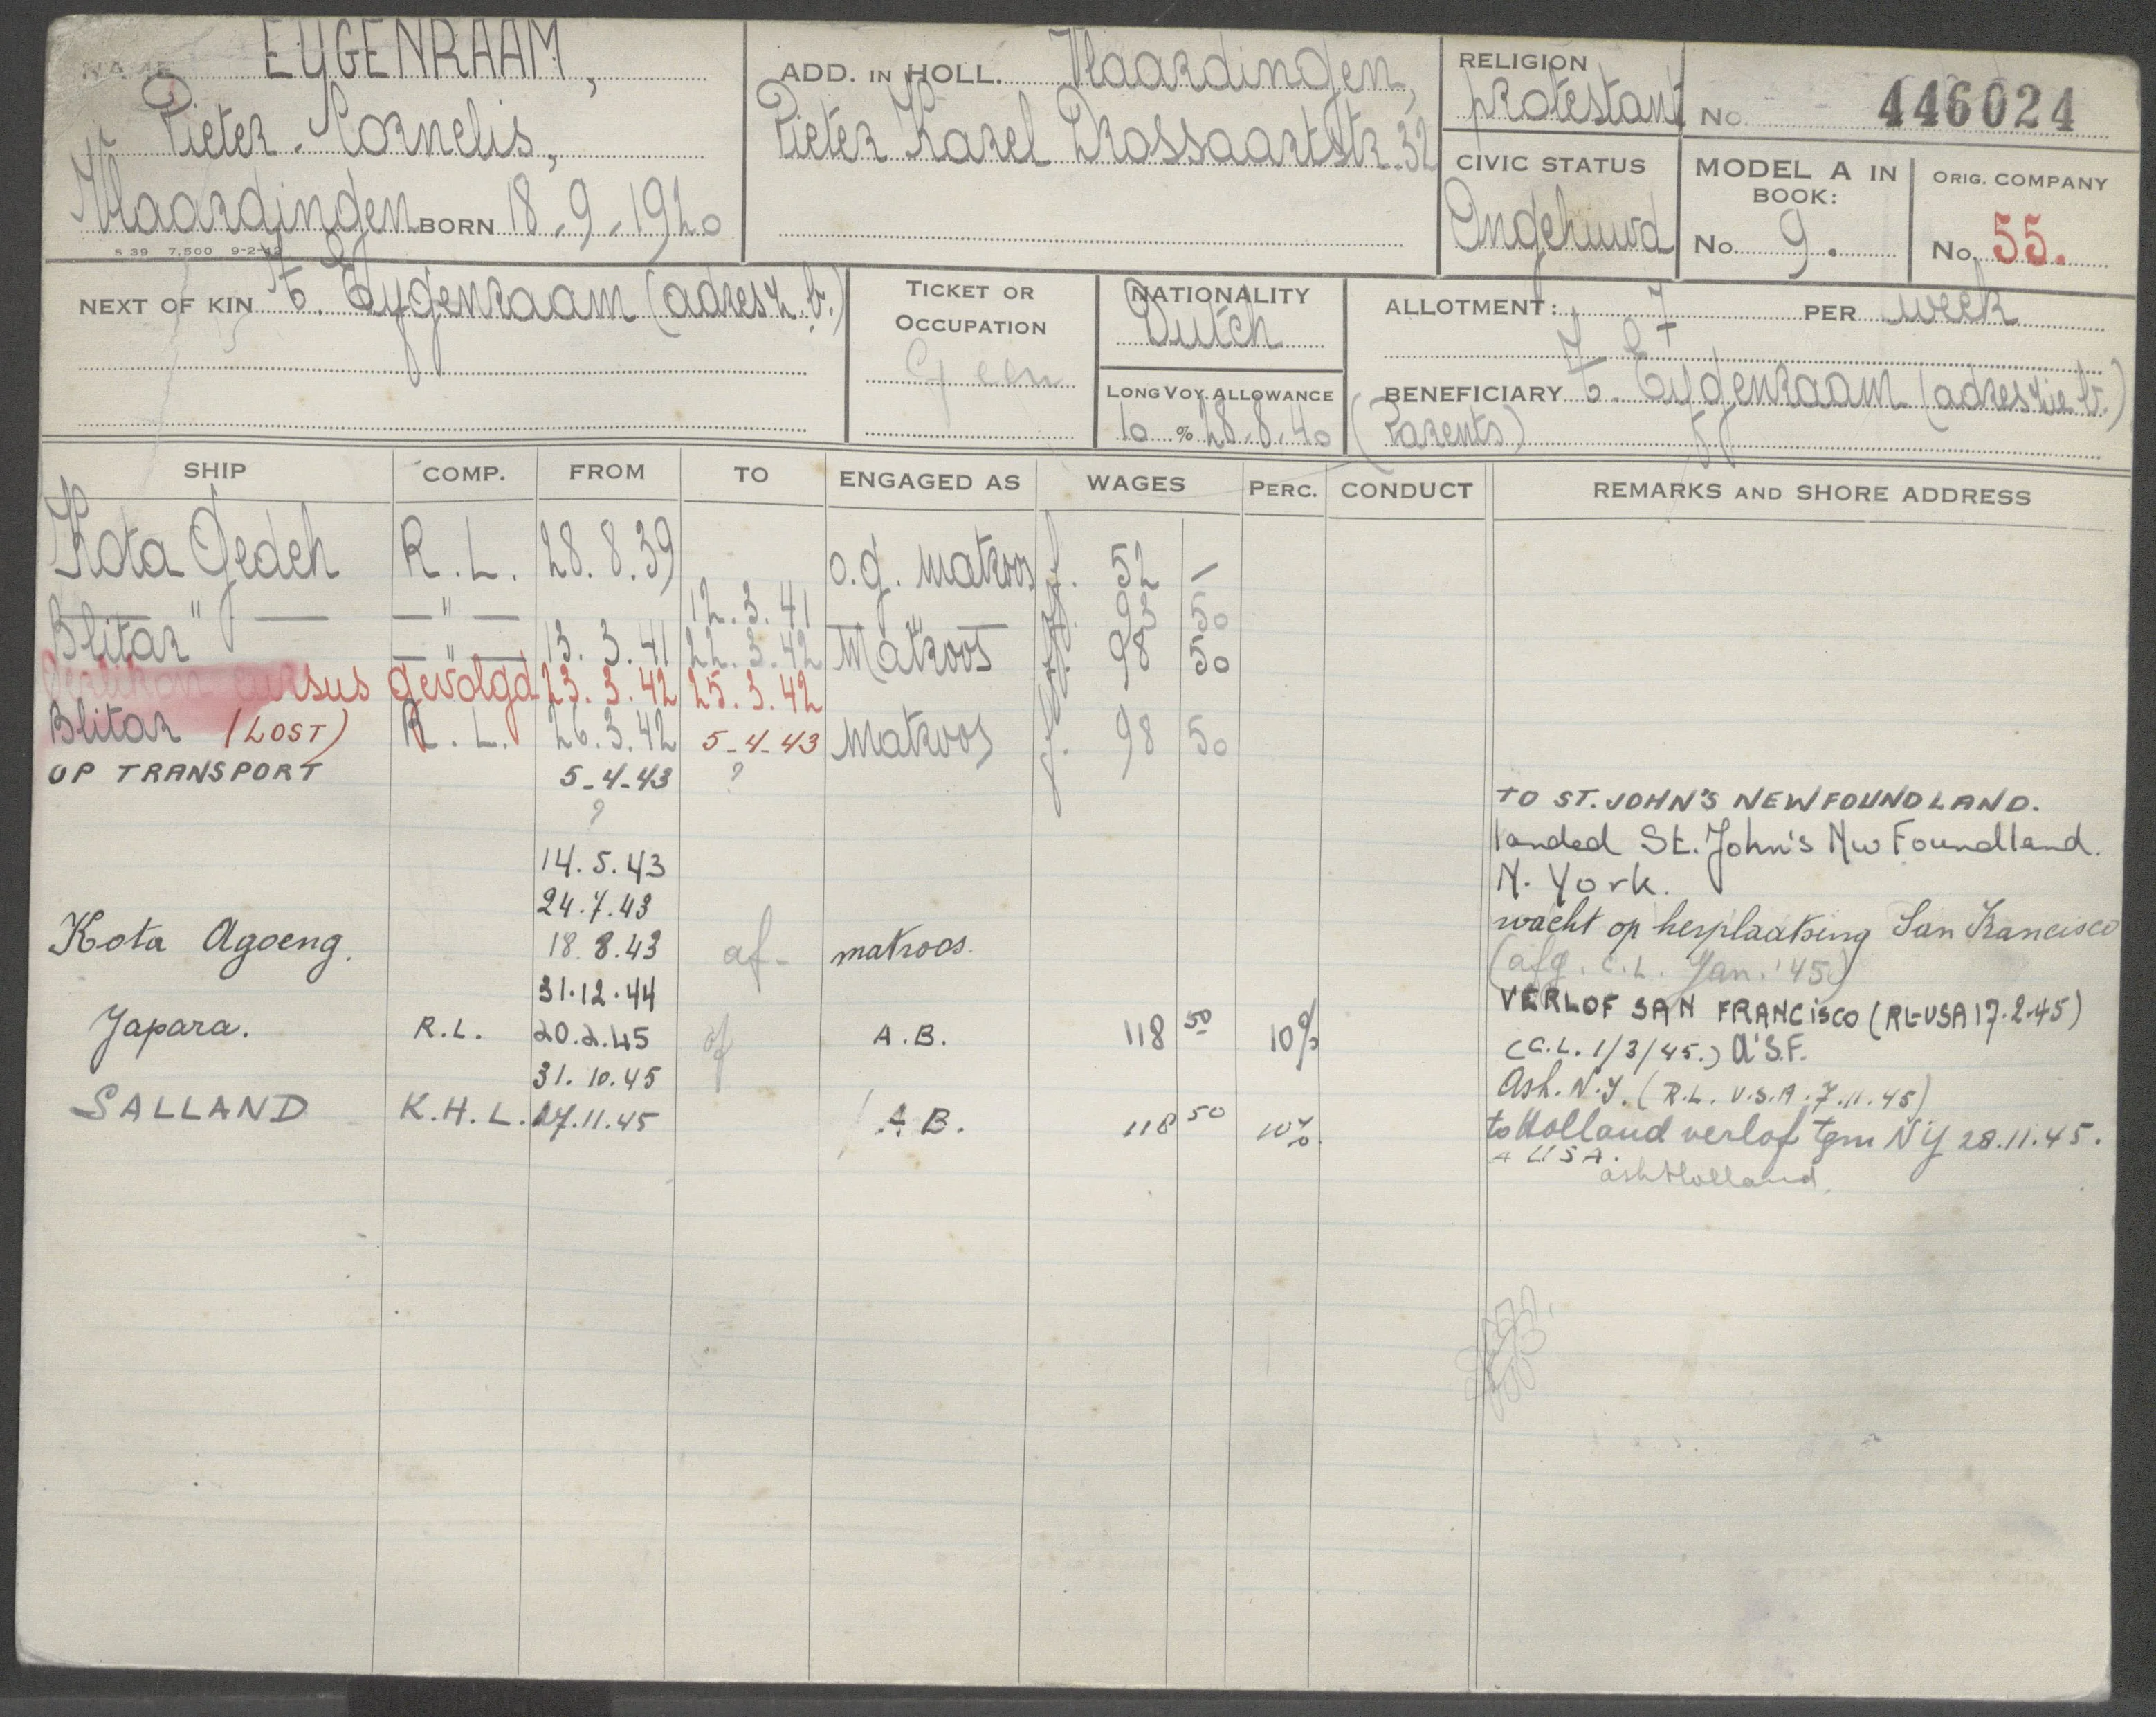 NAME EYGENRAAM,
Pieter Cornelis,
Vlaardingen BORN 18-9-1920
S 39 7,500 9-2-42
ADD. IN HOLL. Vlaardingen,
Pieter Karel Drossaartstr. 32
RELIGION
Protestant
No. 446024
CIVIC STATUS
Ongehuwd
MODEL A IN BOOK:
No. 9.
ORIG. COMPANY
No. 55.
NEXT OF KIN Eygenraam (adres z.b.)
TICKET OR OCCUPATION
Geen
NATIONALITY
Dutch
LONG VOY. ALLOWANCE
10 % 28.8.40
ALLOTMENT: PER week
BENEFICIARY Eygenraam (adres zie b.)
(Parents)
SHIP COMP. FROM TO ENGAGED AS WAGES PERC. CONDUCT REMARKS AND SHORE ADDRESS
Kota Gedeh R.L. 28.8.39 o.g. matroos f. 52 -
— " — — " — 12.3.41 — " — f. 93 50
Blitar — " — 13.3.41 22.3.42 Matroos f. 98 50
Oerlikon cursus gevolgd 23.3.42 25.3.42
Blitar (LOST) R.L. 26.3.42 5-4-43 Matroos f. 98 50
OP TRANSPORT 5-4-43 ?
? TO ST. JOHN'S NEWFOUNDLAND.
landed St. John's Nw Foundland.
14.5.43 N. York.
24.7.43 wacht op herplaatsing San Francisco
Kota Agoeng. 18.8.43 af- matroos. (afg. C.L. Jan. '45)
31.12.44 VERLOF SAN FRANCISCO (RL-USA 17.2.45)
Japara. R.L. 20.2.45 af A.B. 118 50 10% (C.L. 1/3/45.) a'S.F.
31.10.45 Ash. N.Y. (R.L. U.S.A. 7.11.45)
SALLAND K.H.L. 27.11.45 A.B. 118 50 10% to Holland verlof tgm NY 28.11.45.
A USA.
ash Holland.